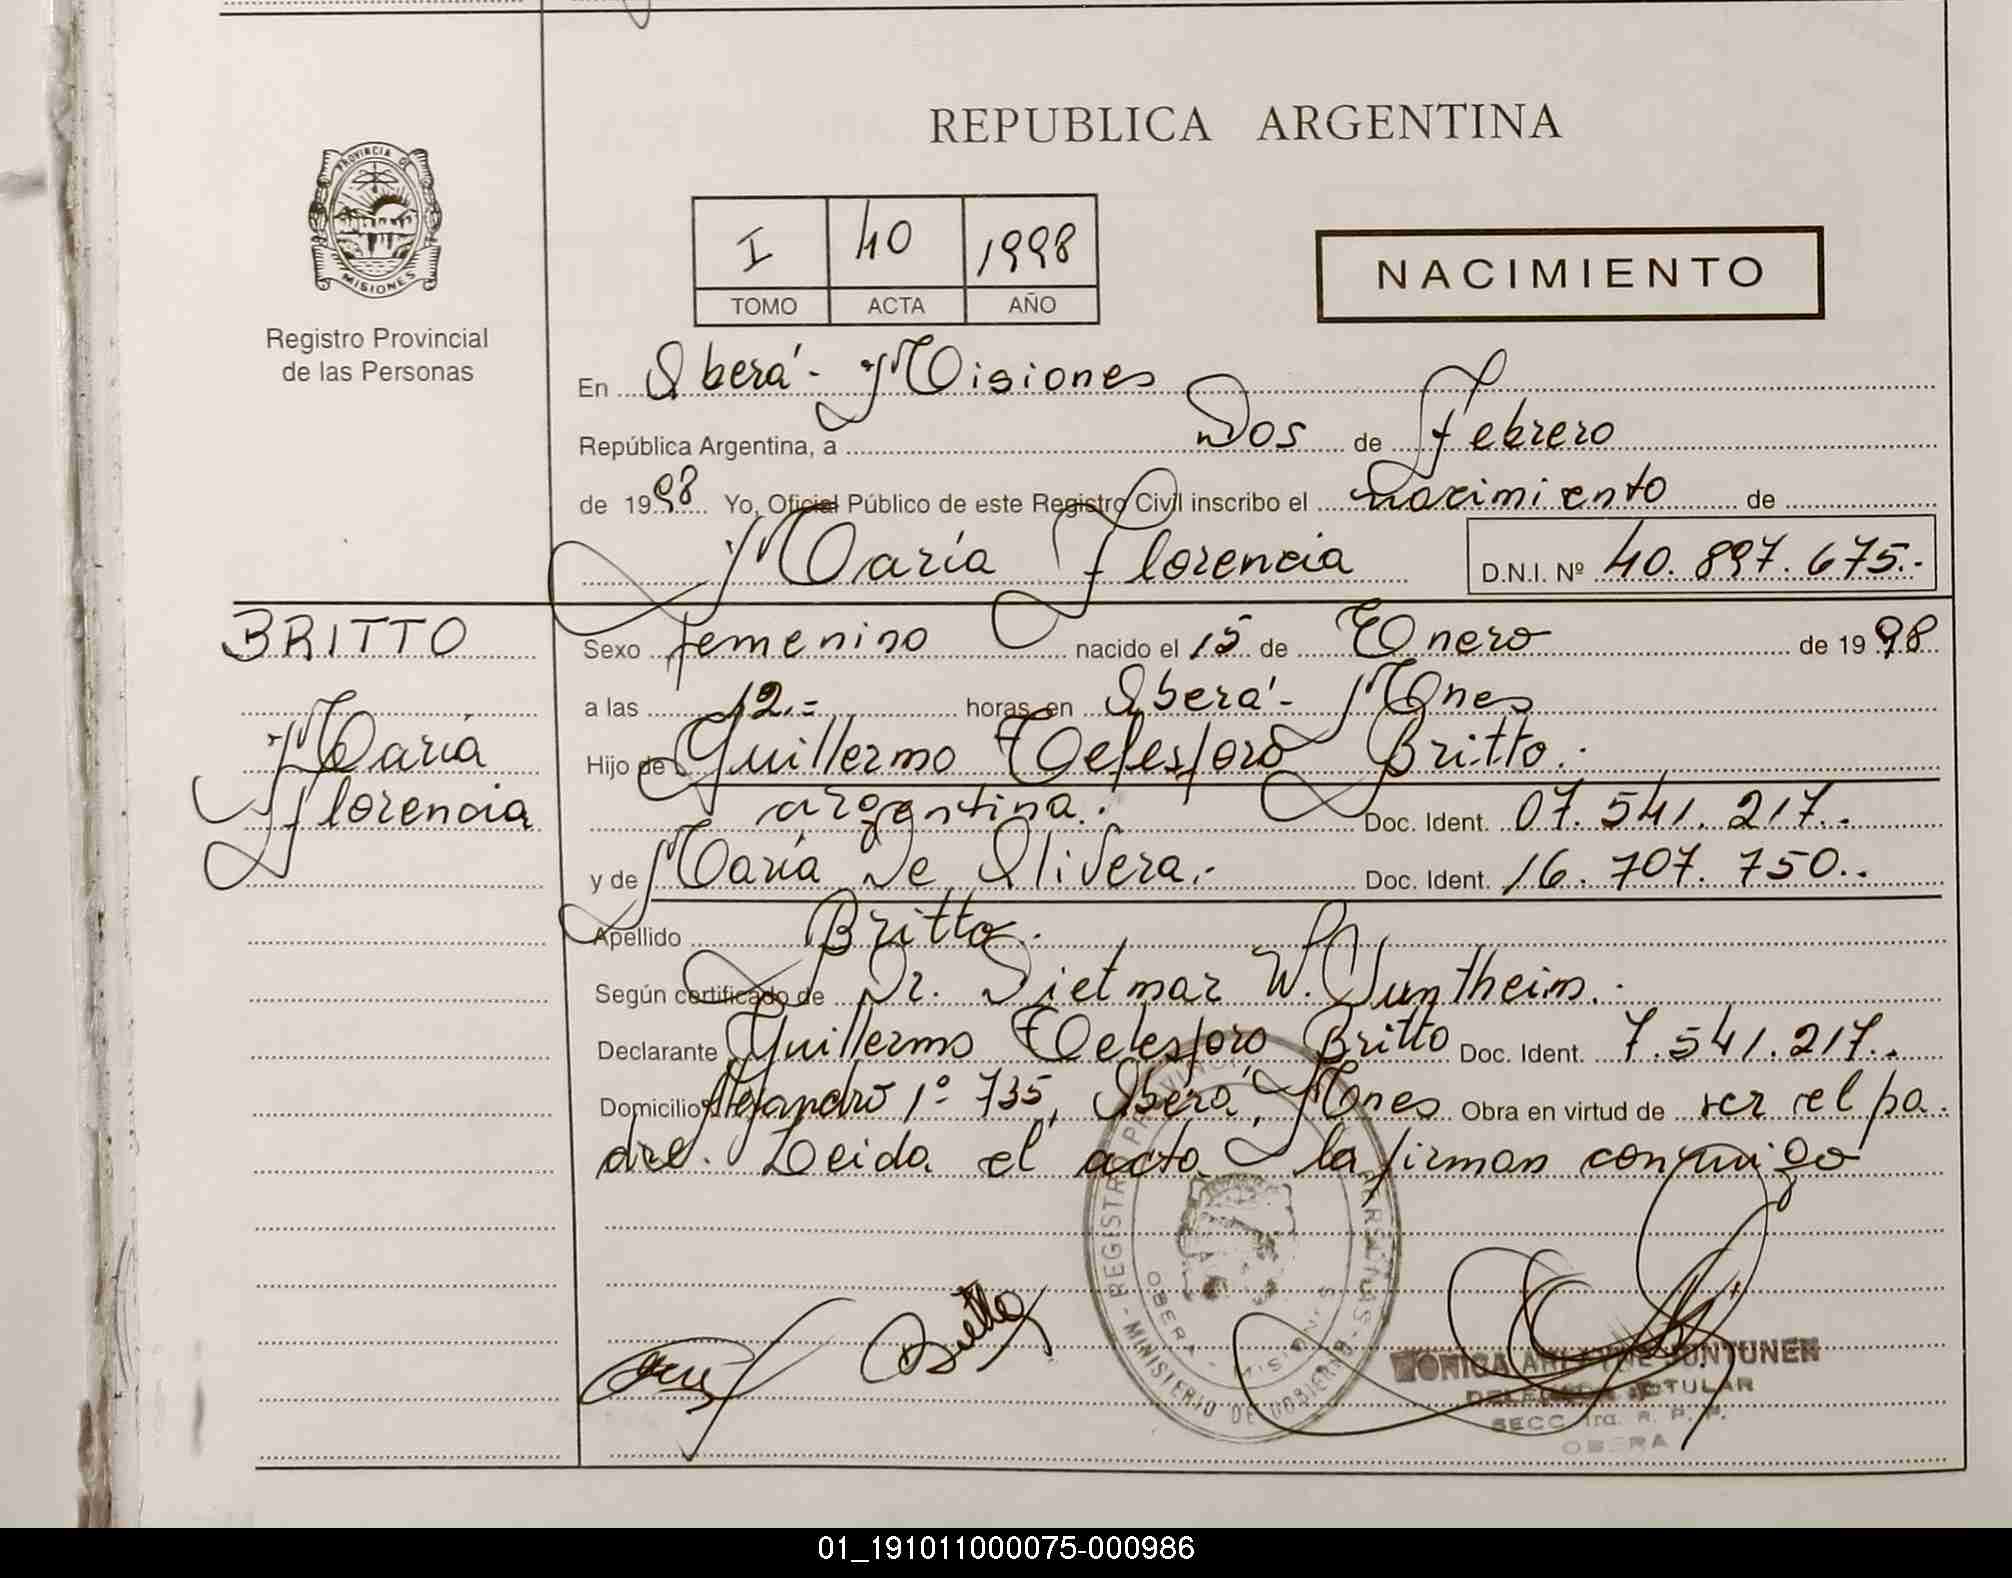 REPUBLICA ARGENTINA
PROVINCIA DE
MISIONES
Registro Provincial
de las Personas
I 40 1998
TOMO ACTA AÑO
NACIMIENTO
En Oberá - Misiones
República Argentina, a Dos de Febrero
de 1998 Yo, Oficial Público de este Registro Civil inscribo el nacimiento de
María Florencia D.N.I. Nº 40.897.675.-
BRITTO
María
Florencia
Sexo femenino nacido el 15 de Enero de 1998
a las 12.= horas en Oberá - Mnes
Hijo de Guillermo Telesforo Britto.
argentina. Doc. Ident. 07.541.217..
y de María De Olivera.- Doc. Ident. 16.707.750..
Apellido Britto.
Según certificado de Dr. Dietmar W. Juntheim.
Declarante Guillermo Telesforo Britto Doc. Ident. 7.541.217..
Domicilio Alejandro 1º 735, Oberá, Mnes Obra en virtud de ser el pa-
dre. Leida el acta la firman conmigo
Britto
REGISTRO PROVINCIAL DE LAS PERSONAS - MINISTERIO DE GOBIERNO
OBERA - MISIONES
MONICA JUNTUNEN
DELEGADA TITULAR
SECC. 1ra. R. P. P.
OBERA
01_191011000075-000986